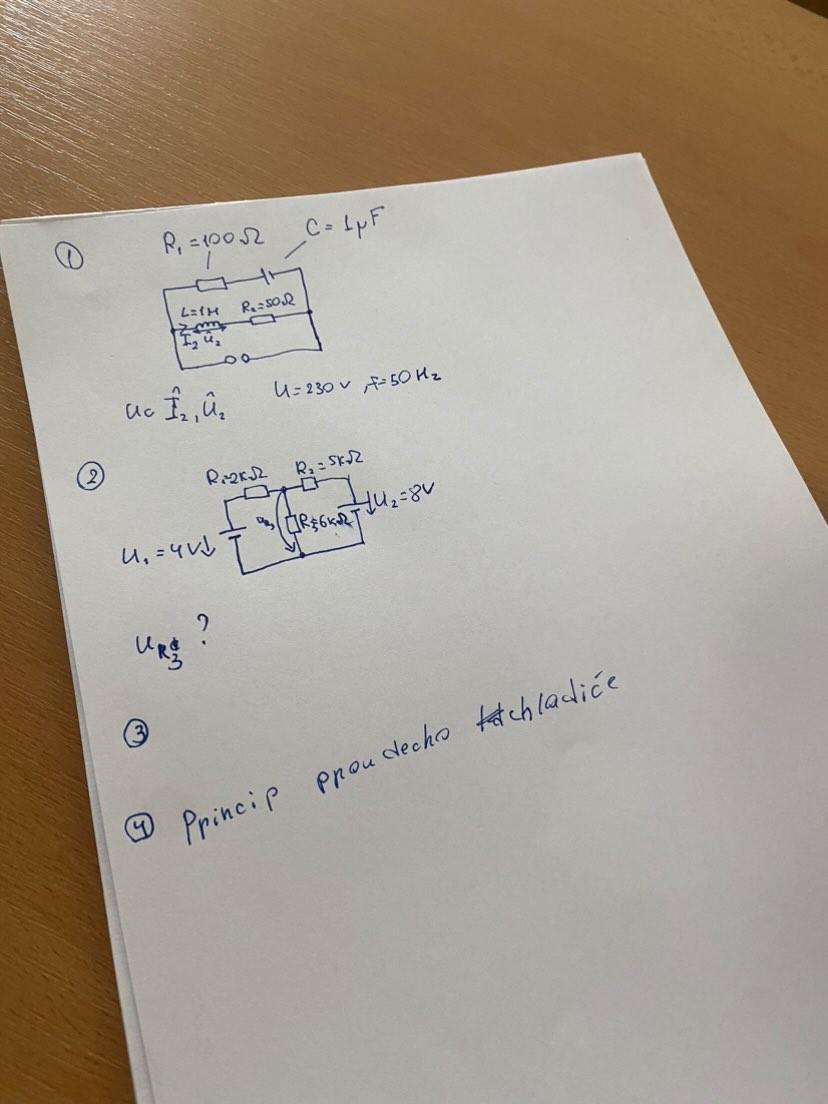 ①
R₁=100Ω
C=1μF
L=1H
R₂=50Ω
I₂ û₂
Î₂, û₂
U=230 V, f=50Hz
②
R₁=2kΩ
R₂=5kΩ
U₂=8V
R₃=6kΩ
U₁=4V
U_R₃ ?
③
④ Princip proudecho chladiče